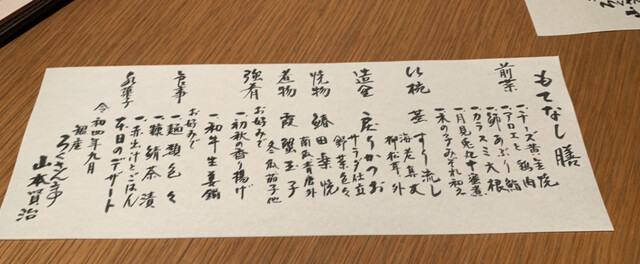 もてなし膳
前菜
一、チーズ黄金焼
一、アロエと鶏肉
一、鰤あぶり鮨
一、カラスミ大根
一、月見丸十蜜煮
一、木の子みぞれ和え
小椀
蕪すり流し
海老真丈
柳松茸 外
造里
戻りかつお
サラダ仕立
野菜色々
焼物
鰆田楽焼
南瓜 青唐 外
煮物
蟹玉子
冬瓜 茄子 他
強肴
お好みで
一、初秋の香り揚げ
一、和牛生姜鍋
食事
お好みで
一、麺類色々
一、鯖茶漬
一、赤出汁とごはん
水菓子
本日のデザート
令和四年九月
銀座
ろくさん亭
山本賢治